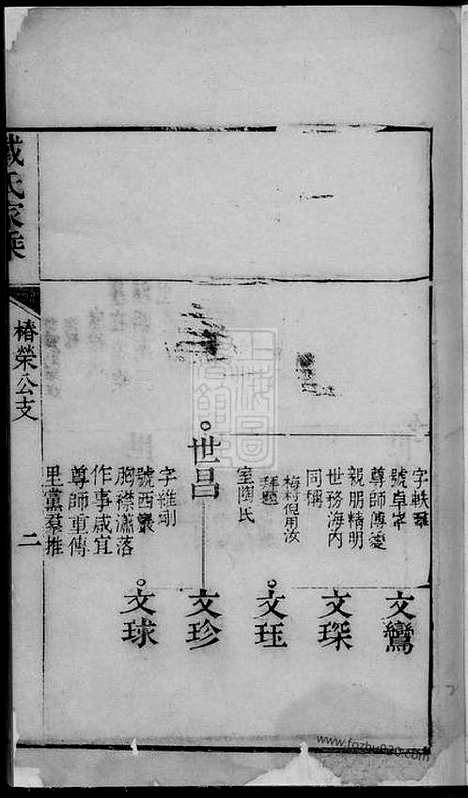 字軼羣
號卓峯
尊師傅愛
親朋精明
世務海內
同稱
梅村倪用汝
拜題
室陶氏
文鸞
文琛
文珏
世昌
文珍
文球
字維剛
號西巖
胸襟瀟落
作事咸宜
尊師重傅
里黨羣推
氏家乘
椿榮公支
二
www.fozhu920.com